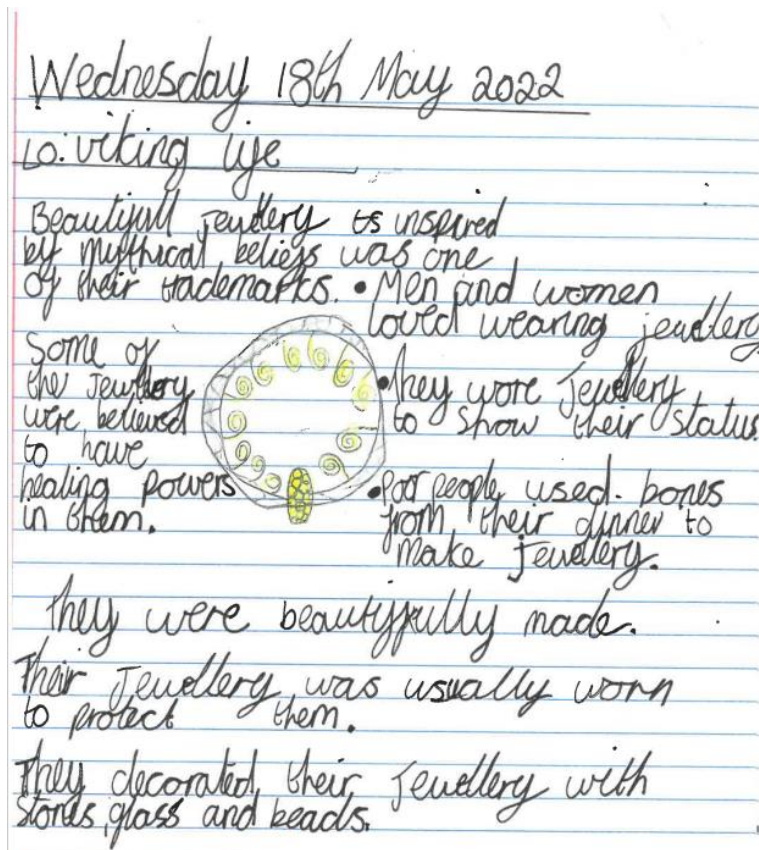 Wednesday 18th May 2022
LO: viking life
Beautifull jewellery is inspired
by mythical beliefs was one
of their trademarks.
• Men and women
loved wearing jewellery
Some of
the Jewellery
were believed
to have
healing powers
in them.
• They wore Jewellery
to show their status.
• Poor people used bones
from their dinner to
make jewellery.
They were beautifully made.
Their Jewellery was usually worn
to protect them.
They decorated their Jewellery with
stones, glass and beads.